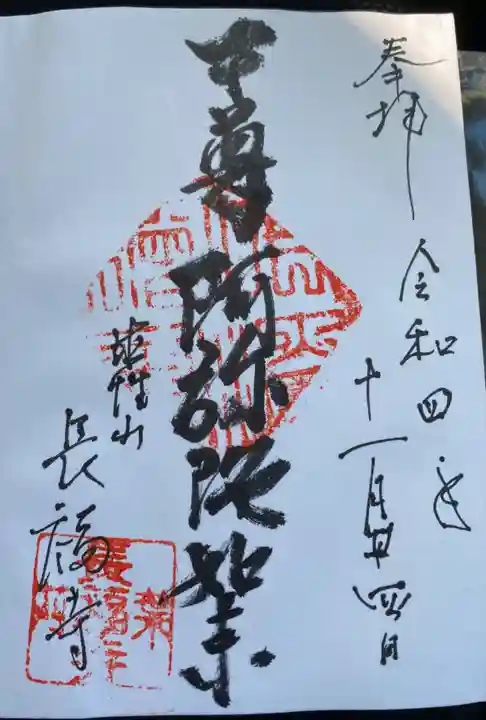 奉拝
令和四年
十一月廿四日
尊阿弥陀如来
性山
長福寺